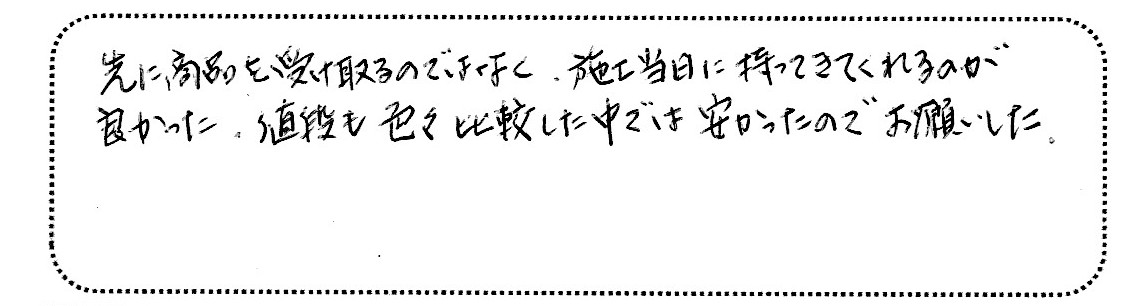 先に商品を受け取るのではなく、施工当日に持ってきてくれるのが
良かった。値段も色々比較した中では安かったのでお願いした。